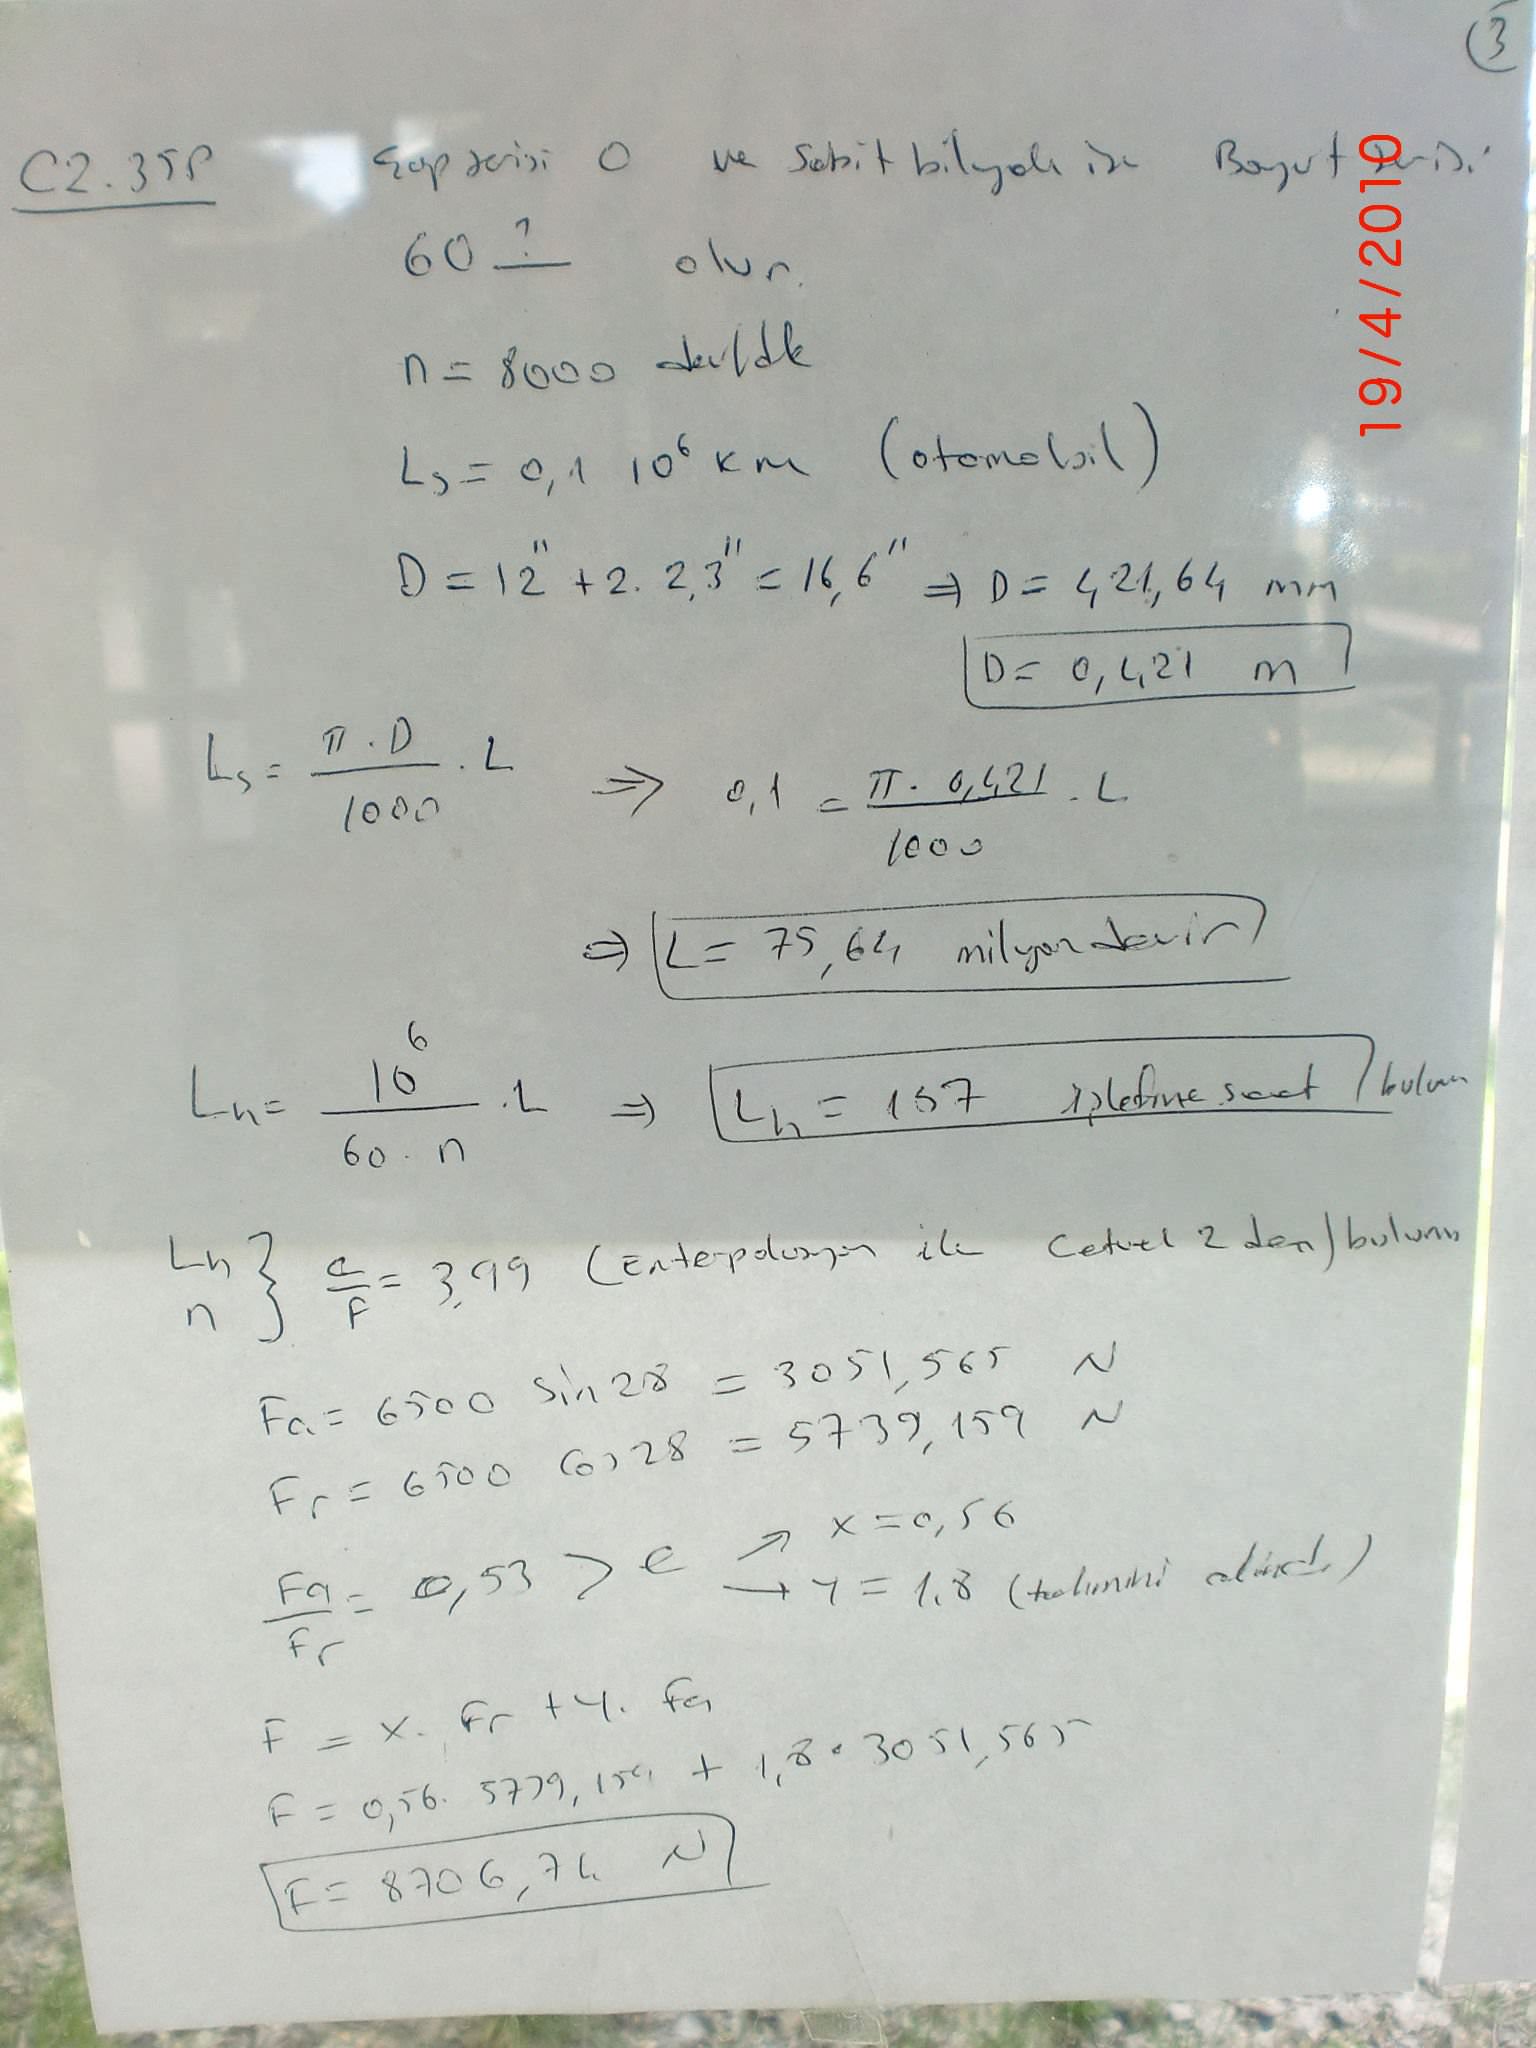 3
C2.35P Çap serisi 0 ve Sabit bilyalı ise Boyut serisi
60 ? olur.
n = 8000 dev/dk
Ls = 0,1 10⁶ km (otomobil)
D = 12" + 2. 2,3" = 16,6" ⇒ D = 421,64 mm
D = 0,421 m
Ls = π.D/1000 . L ⇒ 0,1 = π. 0,421/1000 . L
⇒ L = 75,64 milyon devir
Lh = 10⁶/60.n . L ⇒ Lh = 157 işletme saat bulunur
Lh n } C/F = 3,99 (Enterpolasyon ile Cetvel 2 den) bulunur
Fa = 6500 Sin 28 = 3051,565 N
Fr = 6500 Cos 28 = 5739,159 N
Fa/Fr = 0,53 > e ↗ x = 0,56
→ y = 1,8 (tahmini alındı)
F = x. Fr + y. Fa
F = 0,56. 5739,159 + 1,8 . 3051,565
F = 8706,74 N
19/4/2010